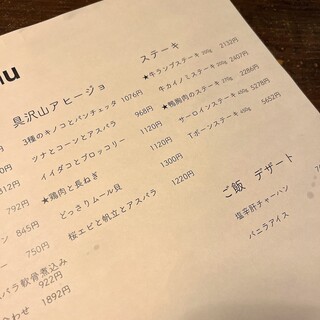 nu
具沢山アヒージョ
3種のキノコとパンチェッタ 1076円
ツナとコーンとアスパラ 968円
イイダコとブロッコリー 1120円
★鶏肉と長ねぎ 1120円
どっさりムール貝 1300円
桜エビと帆立とアスパラ 1220円
ステーキ
★牛ランプステーキ 300g 2132円
牛カイノミステーキ 300g 2607円
★鴨胸肉のステーキ 270g 2286円
サーロインステーキ 600g 5278円
Tボーンステーキ 600g 5652円
ご飯 デザート
塩辛肝チャーハン
バニラアイス
792円
845円
750円
バラ軟骨煮込み
922円
わせ 1892円